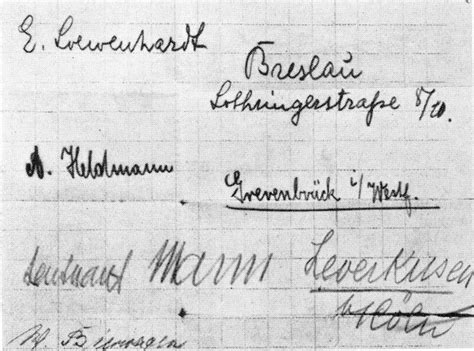 E. Loewenhardt
Breslau
Lothringerstraße 8/20.
A. Heldmann
Grevenbrück i/Westf.
Leutnant Mann Leverkusen
b/Köln
W. Bierwagen